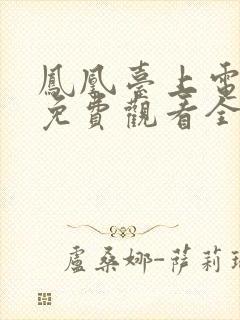 鳳凰臺上電
免費觀看全
盧桑娜-薩莉